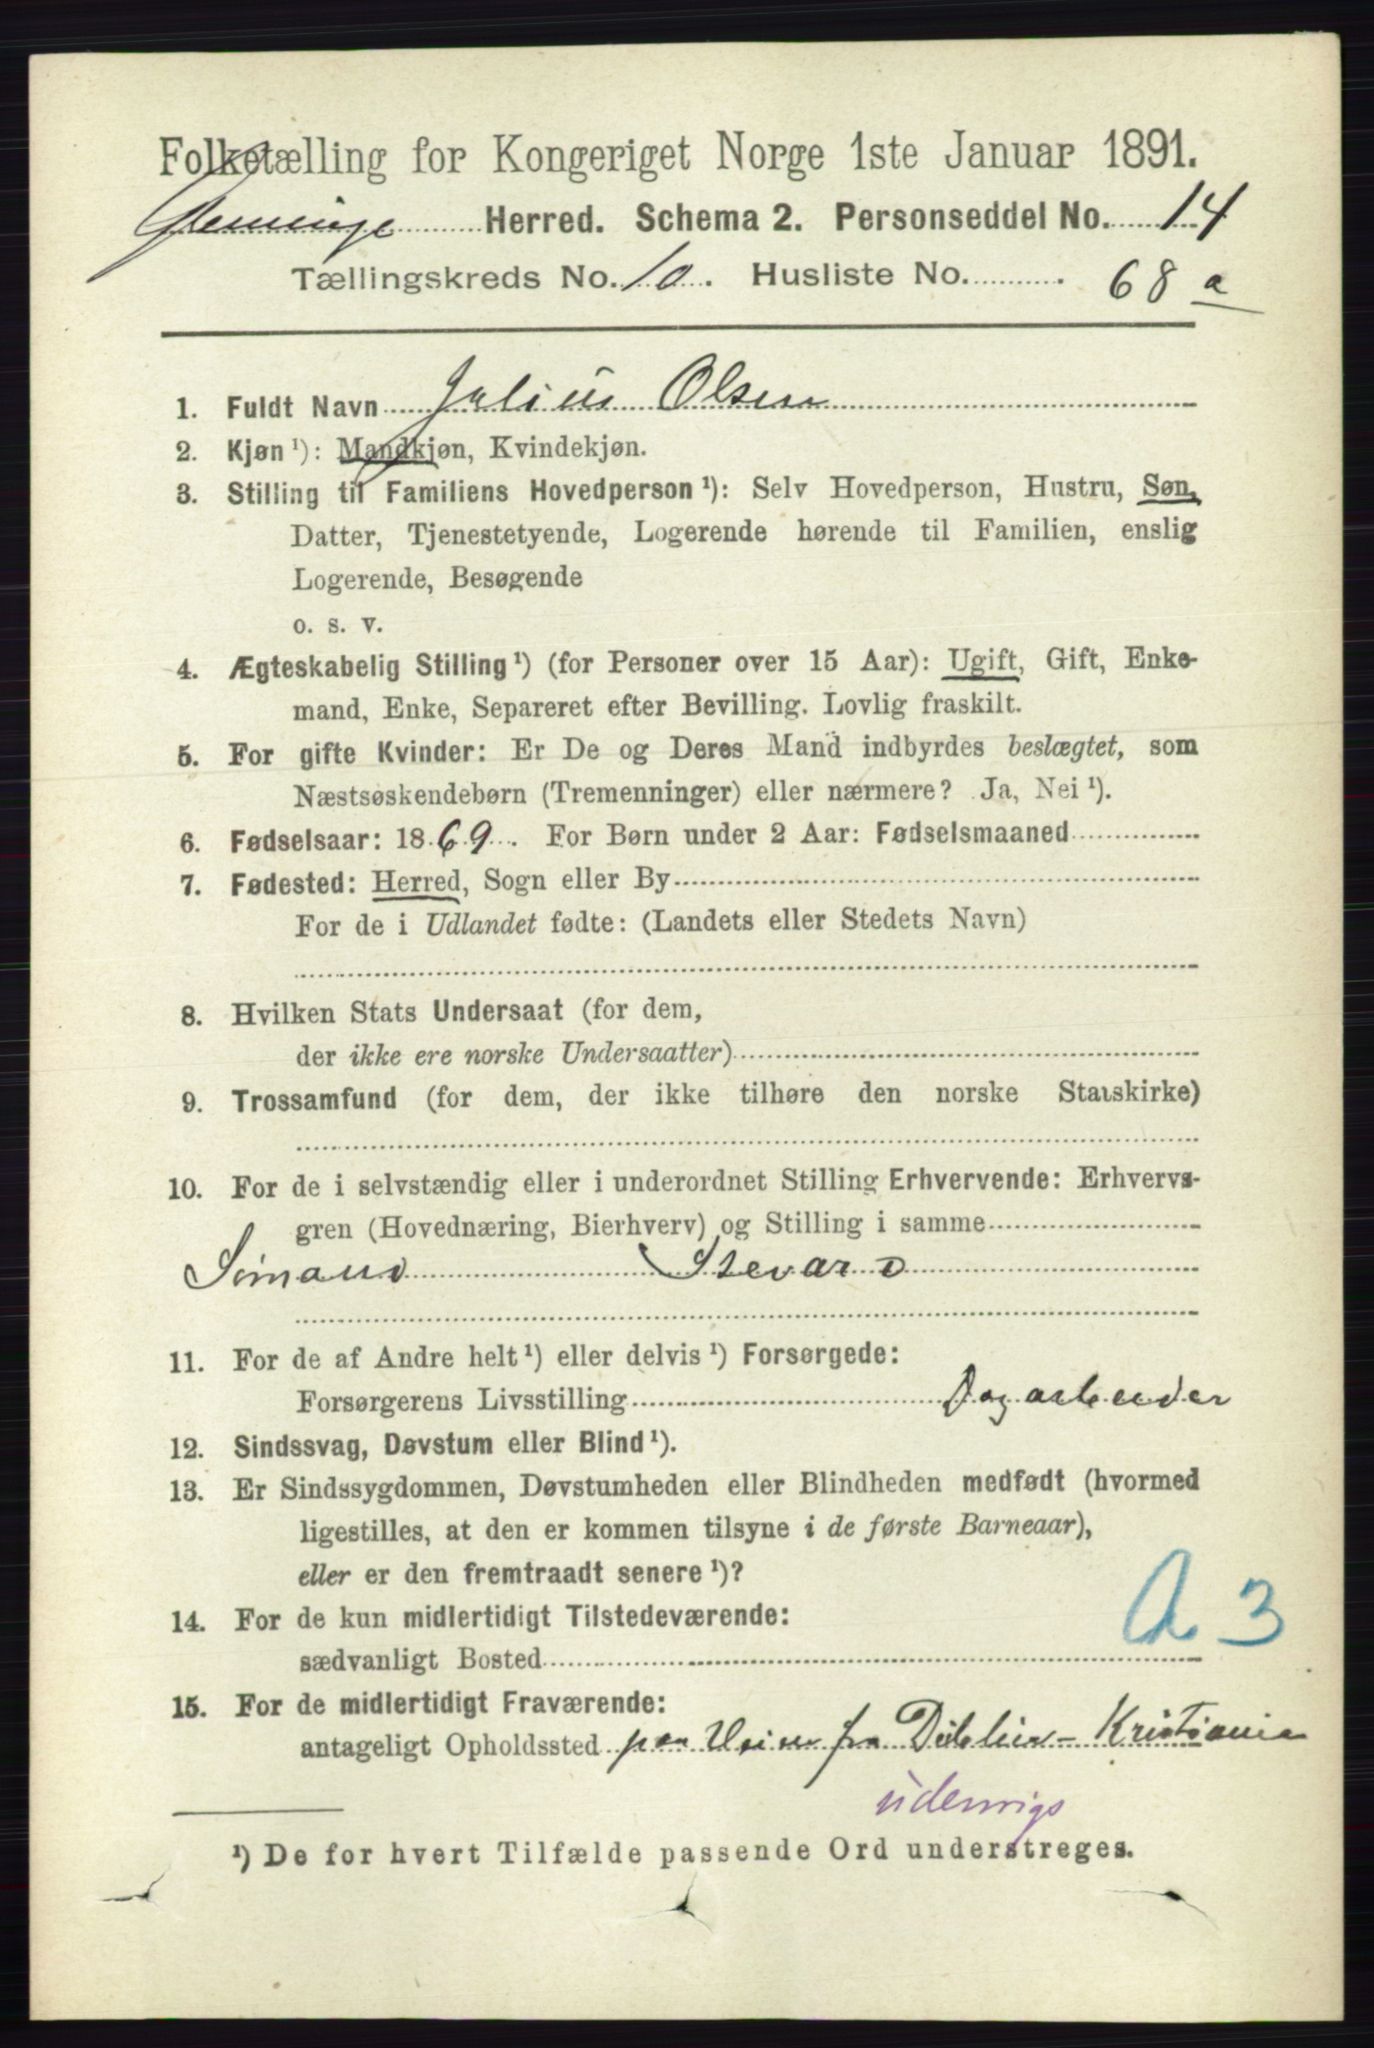 Folketælling for Kongeriget Norge 1ste Januar 1891.
Glemminge Herred. Schema 2. Personseddel No. 14
Tællingskreds No. 10. Husliste No. 68 a
1. Fuldt Navn Julius Olsen
2. Kjøn ¹): Mandkjøn, Kvindekjøn.
3. Stilling til Familiens Hovedperson ¹): Selv Hovedperson, Hustru, Søn,
Datter, Tjenestetyende, Logerende hørende til Familien, enslig
Logerende, Besøgende
o. s. v.
4. Ægteskabelig Stilling ¹) (for Personer over 15 Aar): Ugift, Gift, Enke-
mand, Enke, Separeret efter Bevilling. Lovlig fraskilt.
5. For gifte Kvinder: Er De og Deres Mand indbyrdes beslægtet, som
Næstsøskendebørn (Tremenninger) eller nærmere? Ja, Nei ¹).
6. Fødselsaar: 1869. For Børn under 2 Aar: Fødselsmaaned
7. Fødested: Herred, Sogn eller By
For de i Udlandet fødte: (Landets eller Stedets Navn)
8. Hvilken Stats Undersaat (for dem,
der ikke ere norske Undersaatter)
9. Trossamfund (for dem, der ikke tilhøre den norske Statskirke)
10. For de i selvstændig eller i underordnet Stilling Erhvervende: Erhvervs-
gren (Hovednæring, Bierhverv) og Stilling i samme
Sømand Stevard
11. For de af Andre helt ¹) eller delvis ¹) Forsørgede:
Forsørgerens Livsstilling Dagarbeider
12. Sindssvag, Døvstum eller Blind ¹).
13. Er Sindssygdommen, Døvstumheden eller Blindheden medfødt (hvormed
ligestilles, at den er kommen tilsyne i de første Barneaar),
eller er den fremtraadt senere ¹)?
14. For de kun midlertidigt Tilstedeværende:
sædvanligt Bosted
A 3
15. For de midlertidigt Fraværende:
antageligt Opholdssted paa Reise fra Dublin - Kristiania
udenrigs
¹) De for hvert Tilfælde passende Ord understreges.